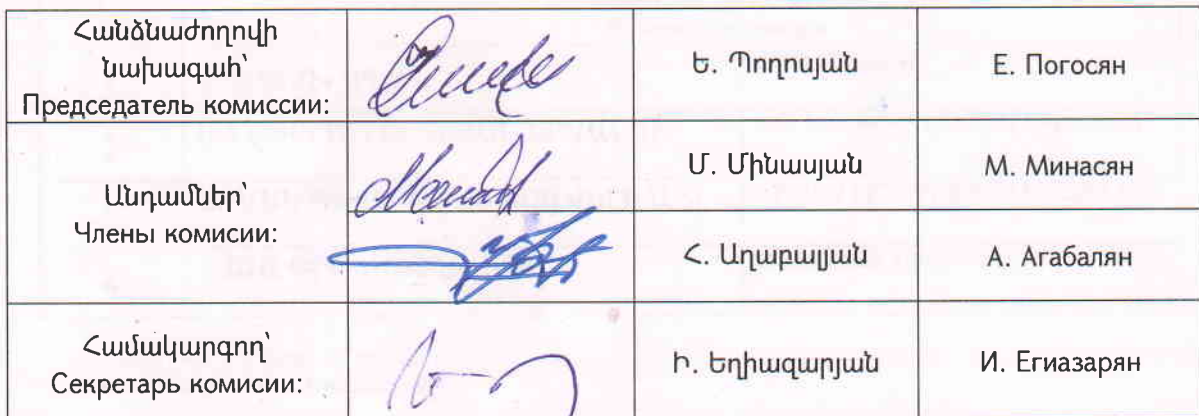 Հանձնաժողովի
նախագահ՝
Председатель комиссии:
Ե. Պողոսյան
Е. Погосян
Անդամներ՝
Члены комисии:
Մ. Մինասյան
М. Минасян
Հ. Աղաբալյան
А. Агабалян
Համակարգող՝
Секретарь комисии:
Ի. Եղիազարյան
И. Егиазарян